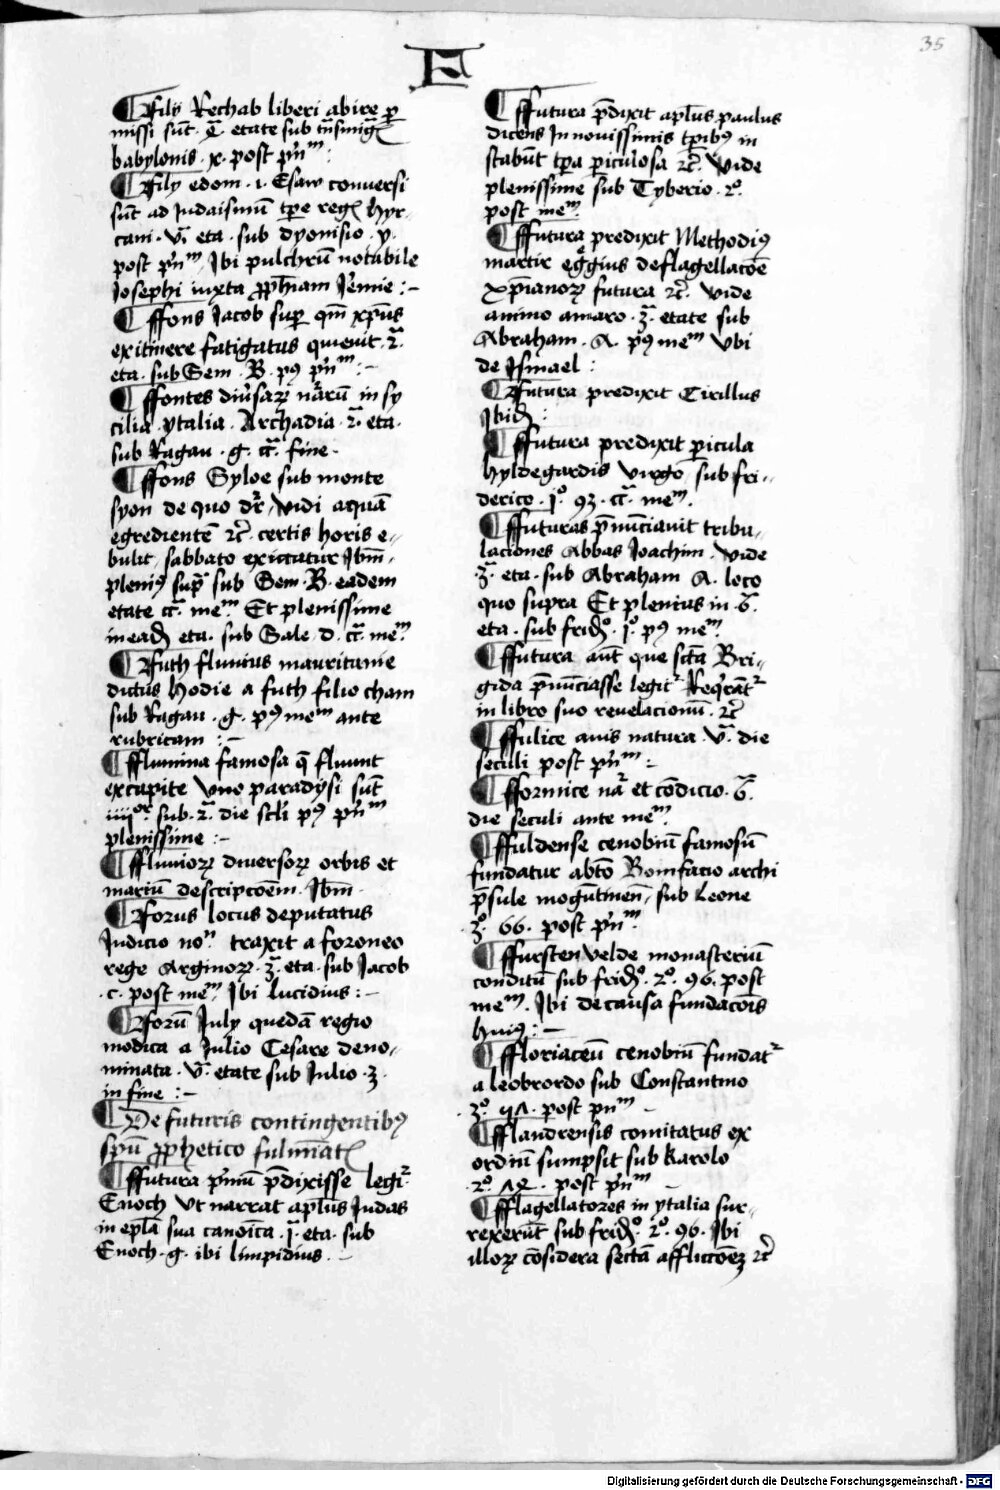 35
F
¶ Filij Rechab liberi abire per
missi sūt · etate sub
babylonis · x · post pⁱnᵐ :
¶ Filij edom · i · Esaw conversi
sūt ad Judaismū tpe reg hyr-
cani · v · eta · sub dyonisio · y ·
post pⁱnᵐ Ibi pulchrū notabile
Josephi iuxta pphiam Jeremie : -
¶ ffons Jacob sup qm xpūs
ex itinere fatigatus quieuit · 2ᵃ
eta · sub Sem · B · p9 pⁱnᵐ : -
¶ ffontes diu̾sarꝝ in sy
cilia · ytalia · Archadia · 2ᵃ · eta ·
sub Ragau · g · cᵃ · fine ·
¶ ffons Syloe sub monte
syon de quo dr̄, vidi aquā
egredientē rc̄ · certis horis e-
bulit, sabbato exiccatur Ibm̄ ·
pleni9 supᵃ sub Sem · B · eadem
etate cᵃ · meᵐ Et plenissime
in eadꝫ eta · sub Sale · d · cᵃ · meᵐ
¶ Futh fluuius mauritanie
dictus hodie a futh filio cham
sub Ragau · g · p9 meᵐ ante
rubricam : -
¶ fflumina famosa q̄ fluunt
ex capite vno paradysi sūt
iiiiᵒʳ · sub · 2ᵃ · die scli p9 pⁱnᵐ
plenissime : -
¶ ffluuiorꝝ diuersorꝝ orbis et
mariū descripcoēm · Ibm̄ ·
¶ Forus locus deputatus
Judicio noᵐ traxit a foroneo
rege Arginorꝝ · 3ᵃ · eta · sub Jacob
· c · post meᵐ Ibi lucidius : -
¶ Forū July quedā regio
modica a Julio Cesare deno-
minata · vᵃ · etate sub Julio · 3 ·
in fine : -
¶ De futuris contingentib9
spū pphetico fulminat
¶ ffutura pⁱmū p̄dixisse legiᵗ
Enoch vt narrat apl̄us Judas
in epl̄a sua canoīca · iᵃ · eta · sub
Enoch · g · ibi limpidius · -
¶ ffutura p̄dixit apl̄us paulus
dicens In nouissimis tpib9 in
stabūt tpa piculosa rc̄ · vide
plenissime sub Tyberio · 2º ·
post meᵐ
¶ ffutura predixit Methodi9
martir egregius de flagellacoē
xp̄ianorꝝ futura rc̄ · vide
animo amaro · 3ᵃ · etate sub
Abraham · A · p9 meᵐ vbi
de Ismael :
¶ Futura predixit Cirillus
Ibidꝫ :
¶ ffutura predixit picula
hyldegardis virgo sub fri-
derico · iº · 93 · cᵃ · meᵐ
¶ ffuturas p̄nūciauit tribu-
laciones Abbas Joachim · vide
· 3ᵃ · eta · sub Abraham A · loco
quo supra Et plenius in · 6ᵃ ·
eta · sub fridꝫº · iº · p9 meᵐ
¶ ffutura aūt que sctā Bri-
gida p̄nūciasse legiᵗ Reqⁱrāᵗ
in libro suo reuelacionū · rc̄
¶ ffulice auis natura · vᵃ · die
seculi post pⁱnᵐ :
¶ fformice naᵃ et cōdicio · 6ᵃ ·
die seculi ante meᵐ
¶ ffuldense cenobiū famosū
fundatur abto Bonifacio archi
p̄sule mogūtineñ, sub leone
· 3º · 66 · post pⁱnᵐ
¶ ffursten velde monasteriū
conditū sub fridꝫº · 2º · 96 · post
meᵐ · Ibi de causa fundacois
hui9 : -
¶ ffloriaceū cenobiū fundatᵗ
a leobrordo sub Constantino
· 3º · post pnᵐ -
¶ fflandrensis comitatus ex
ordiū sumpsit sub karolo
· 2º · post pⁱnᵐ -
¶ fflagellatores in ytalia sur-
rexerūt sub fridꝫº · 2º · 96 · Ibi
illorꝝ cōsidera sectā affliccoēꝫ rc̄
Digitalisierung gefördert durch die Deutsche Forschungsgemeinschaft - DFG